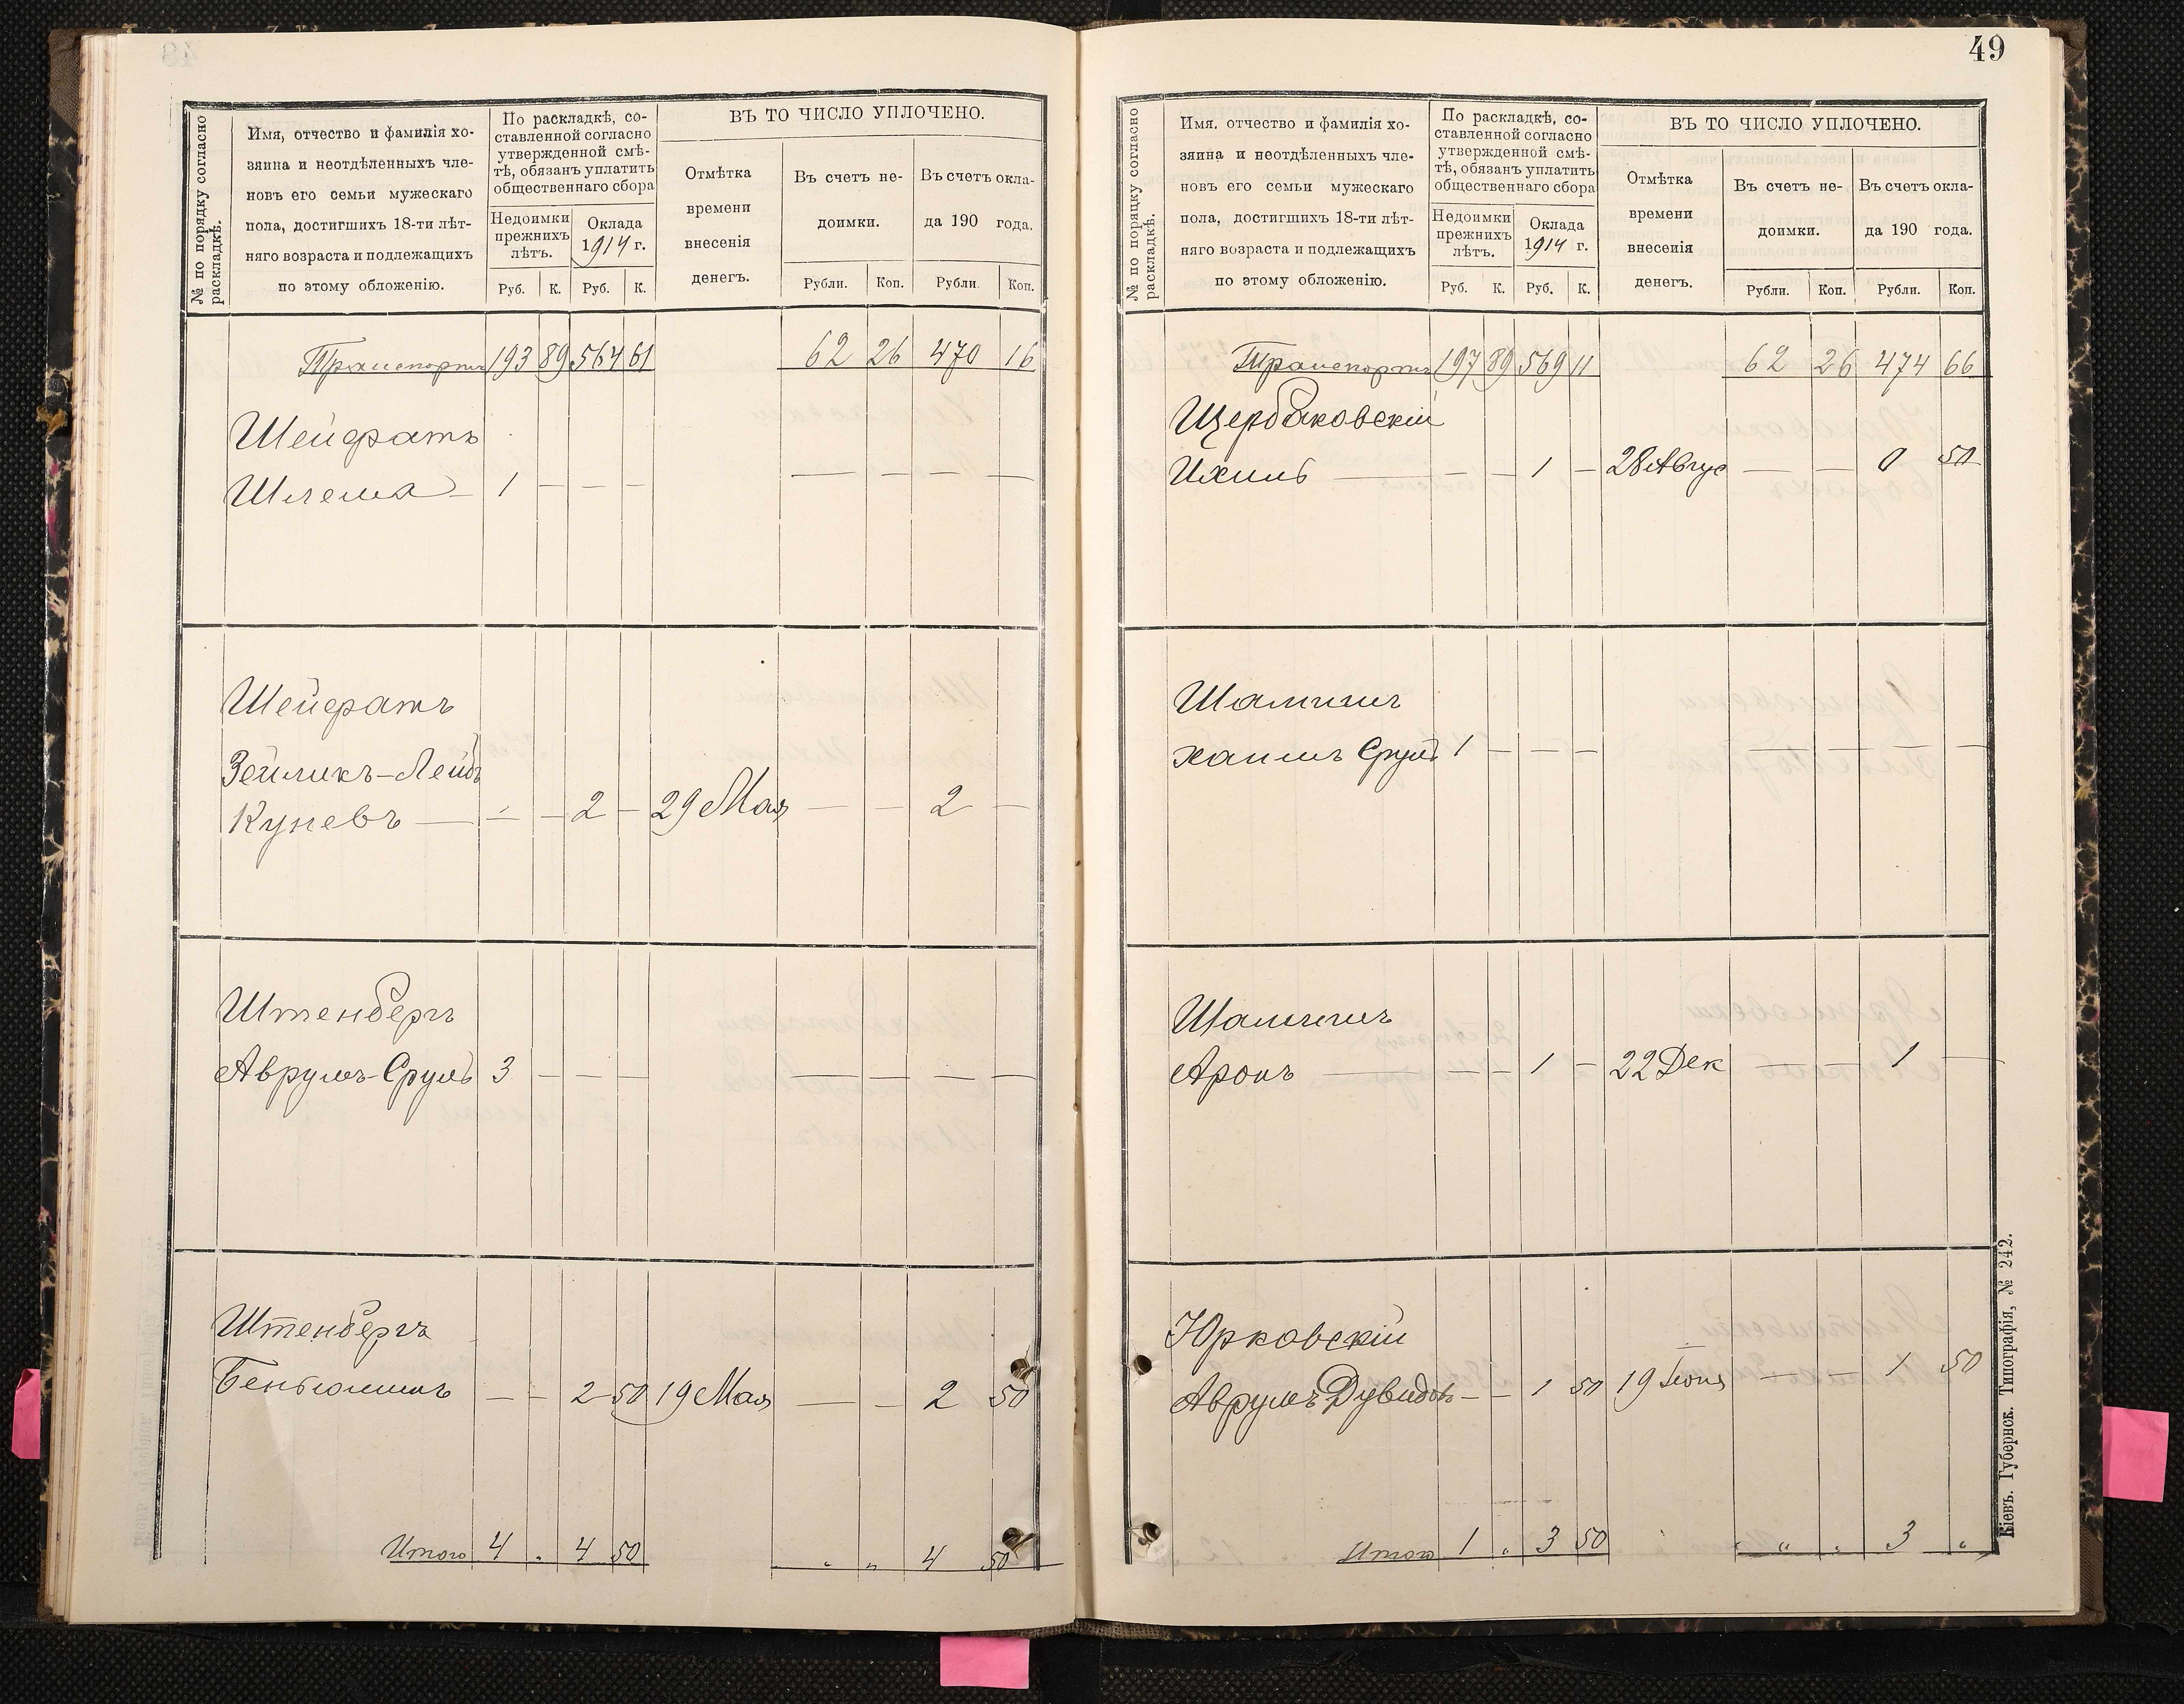 № по порядку согласно
раскладкѣ.
Имя, отчество и фамилія хо-
зяина и неотдѣленныхъ чле-
новъ его семьи мужескаго
пола, достигшихъ 18-ти лѣт-
няго возраста и подлежащихъ
по этому обложенію.
По раскладкѣ, со-
ставленной согласно
утвержденной смѣ-
тѣ, обязанъ уплатить
общественнаго сбора
Недоимки
прежнихъ
лѣтъ.
Оклада
1914 г.
Руб. К. Руб. К.
ВЪ ТО ЧИСЛО УПЛОЧЕНО.
Отмѣтка
времени
внесенія
денегъ.
Въ счетъ не-
доимки.
Въ счетъ окла-
да 190 года.
Рубли. Коп. Рубли. Коп.
Транспортъ 193 89 564 61 62 26 470 16
Шейфратъ
Шлема — 1 — — — — — — —
Шейфратъ
Зейликъ-Лейбъ
Куневъ — — — 2 — 29 Мая — — 2 —
Штенбергъ
Аврумъ-Сруль 3 — — — — — — —
Штенбергъ
Беньюминъ — — 2 50 19 Мая — — 2 50
Итого 4 „ 4 50 „ „ 4 50
49
№ по порядку согласно
раскладкѣ.
Имя. отчество и фамилія хо-
зяина и неотдѣленныхъ чле-
новъ его семьи мужескаго
пола, достигшихъ 18-ти лѣт-
няго возраста и подлежащихъ
по этому обложенію.
По раскладкѣ, со-
ставленной согласно
утвержденной смѣ-
тѣ, обязанъ уплатить
общественнаго сбора
Недоимки
прежнихъ
лѣтъ.
Оклада
1914 г.
Руб. К. Руб. К.
ВЪ ТО ЧИСЛО УПЛОЧЕНО.
Отмѣтка
времени
внесенія
денегъ.
Въ счетъ не-
доимки.
Въ счетъ окла-
да 190 года.
Рубли. Коп. Рубли. Коп.
Транспортъ 197 89 569 11 62 26 474 66
Щербаковскій
Ихиль — — — 1 — 28 Авгус — — 0 50
Хаимъ Сруль 1 — — — — — — —
Аронъ — — — 1 — 22 Дек — — 1 —
Юрковскій
Аврумъ Дувидовъ — — 1 50 19 Іюня — — 1 50
Итого 1 „ 3 50 „ „ 3 „
Кіевъ. Губернск. Типографія, № 242.